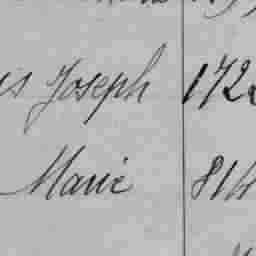 is Joseph 172
Marie 814